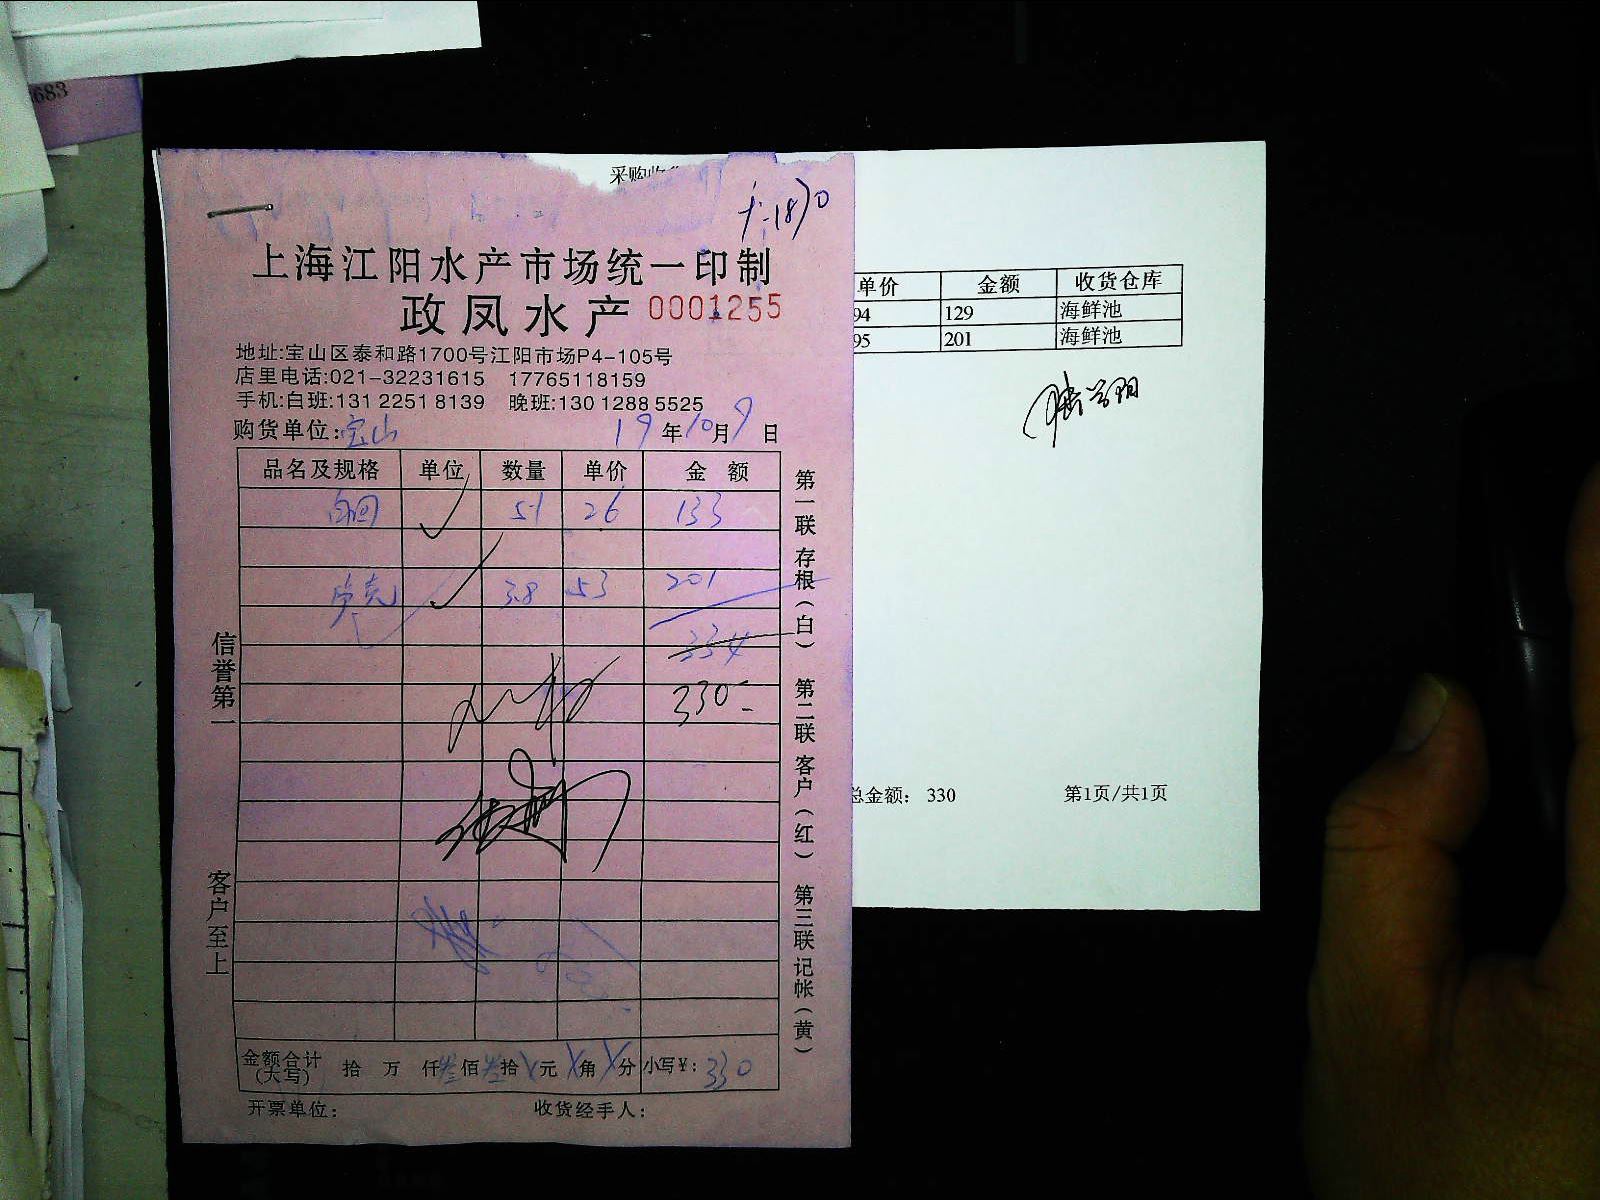 683
采购收货
上海江阳水产市场统一印制
政凤水产 0001255
地址:宝山区泰和路1700号江阳市场P4-105号
店里电话:021-32231615 17765118159
手机:白班:131 2251 8139 晚班:130 1288 5525
购货单位:宝山 19年10月9日
品名及规格 单位 数量 单价 金额
51 26 133
3.8 53 201
334
330
金额合计(大写) 拾 万 仟叁佰叁拾 元 角 分 小写¥:330
开票单位: 收货经手人:
信誉第一
客户至上
第一联存根(白) 第二联客户(红) 第三联记帐(黄)
单价 金额 收货仓库
94 129 海鲜池
95 201 海鲜池
总金额: 330 第1页/共1页